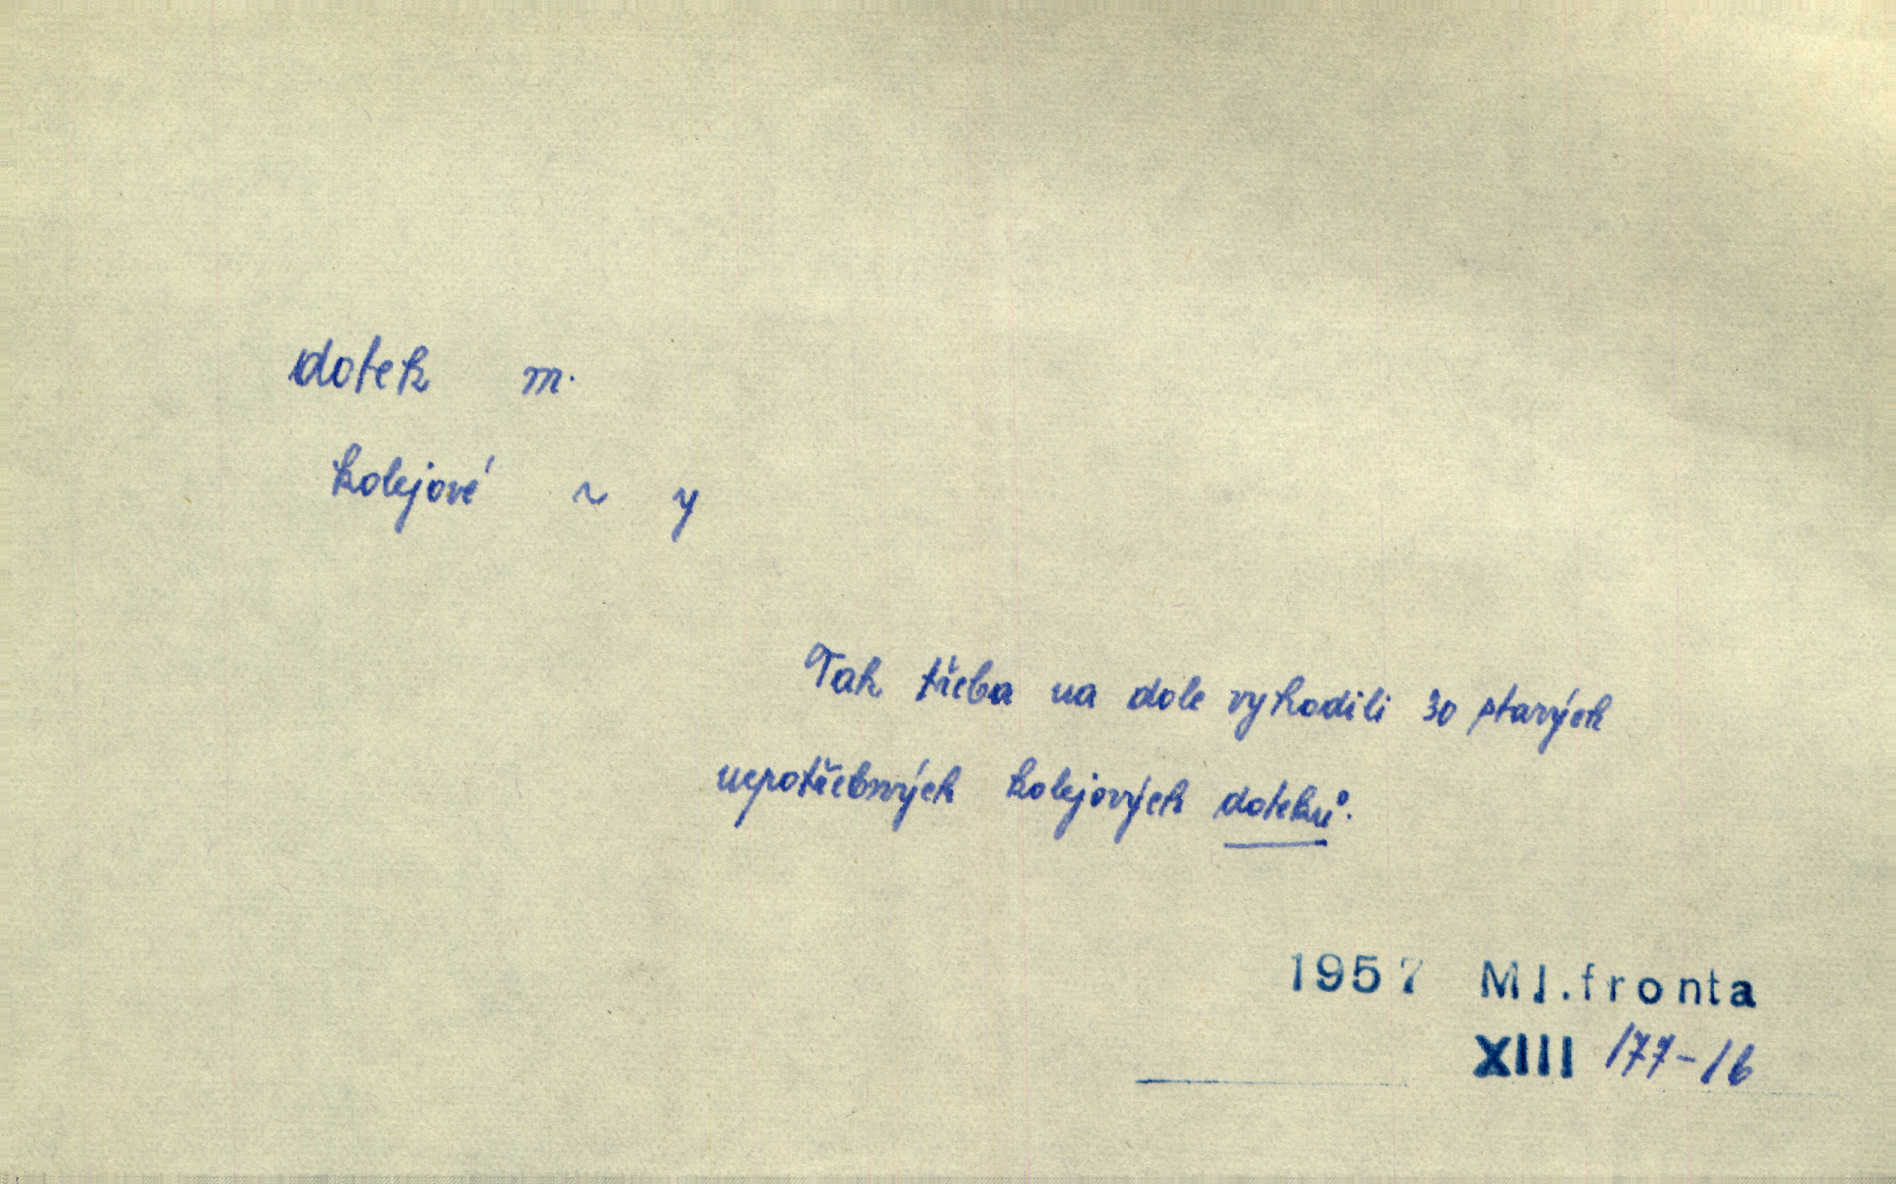 dotek m.
kolejové ~ y
Tak třeba na dole vyhodili 30 starých
nepotřebných kolejových doteků.
1957 Ml.fronta
XIII 177-1b